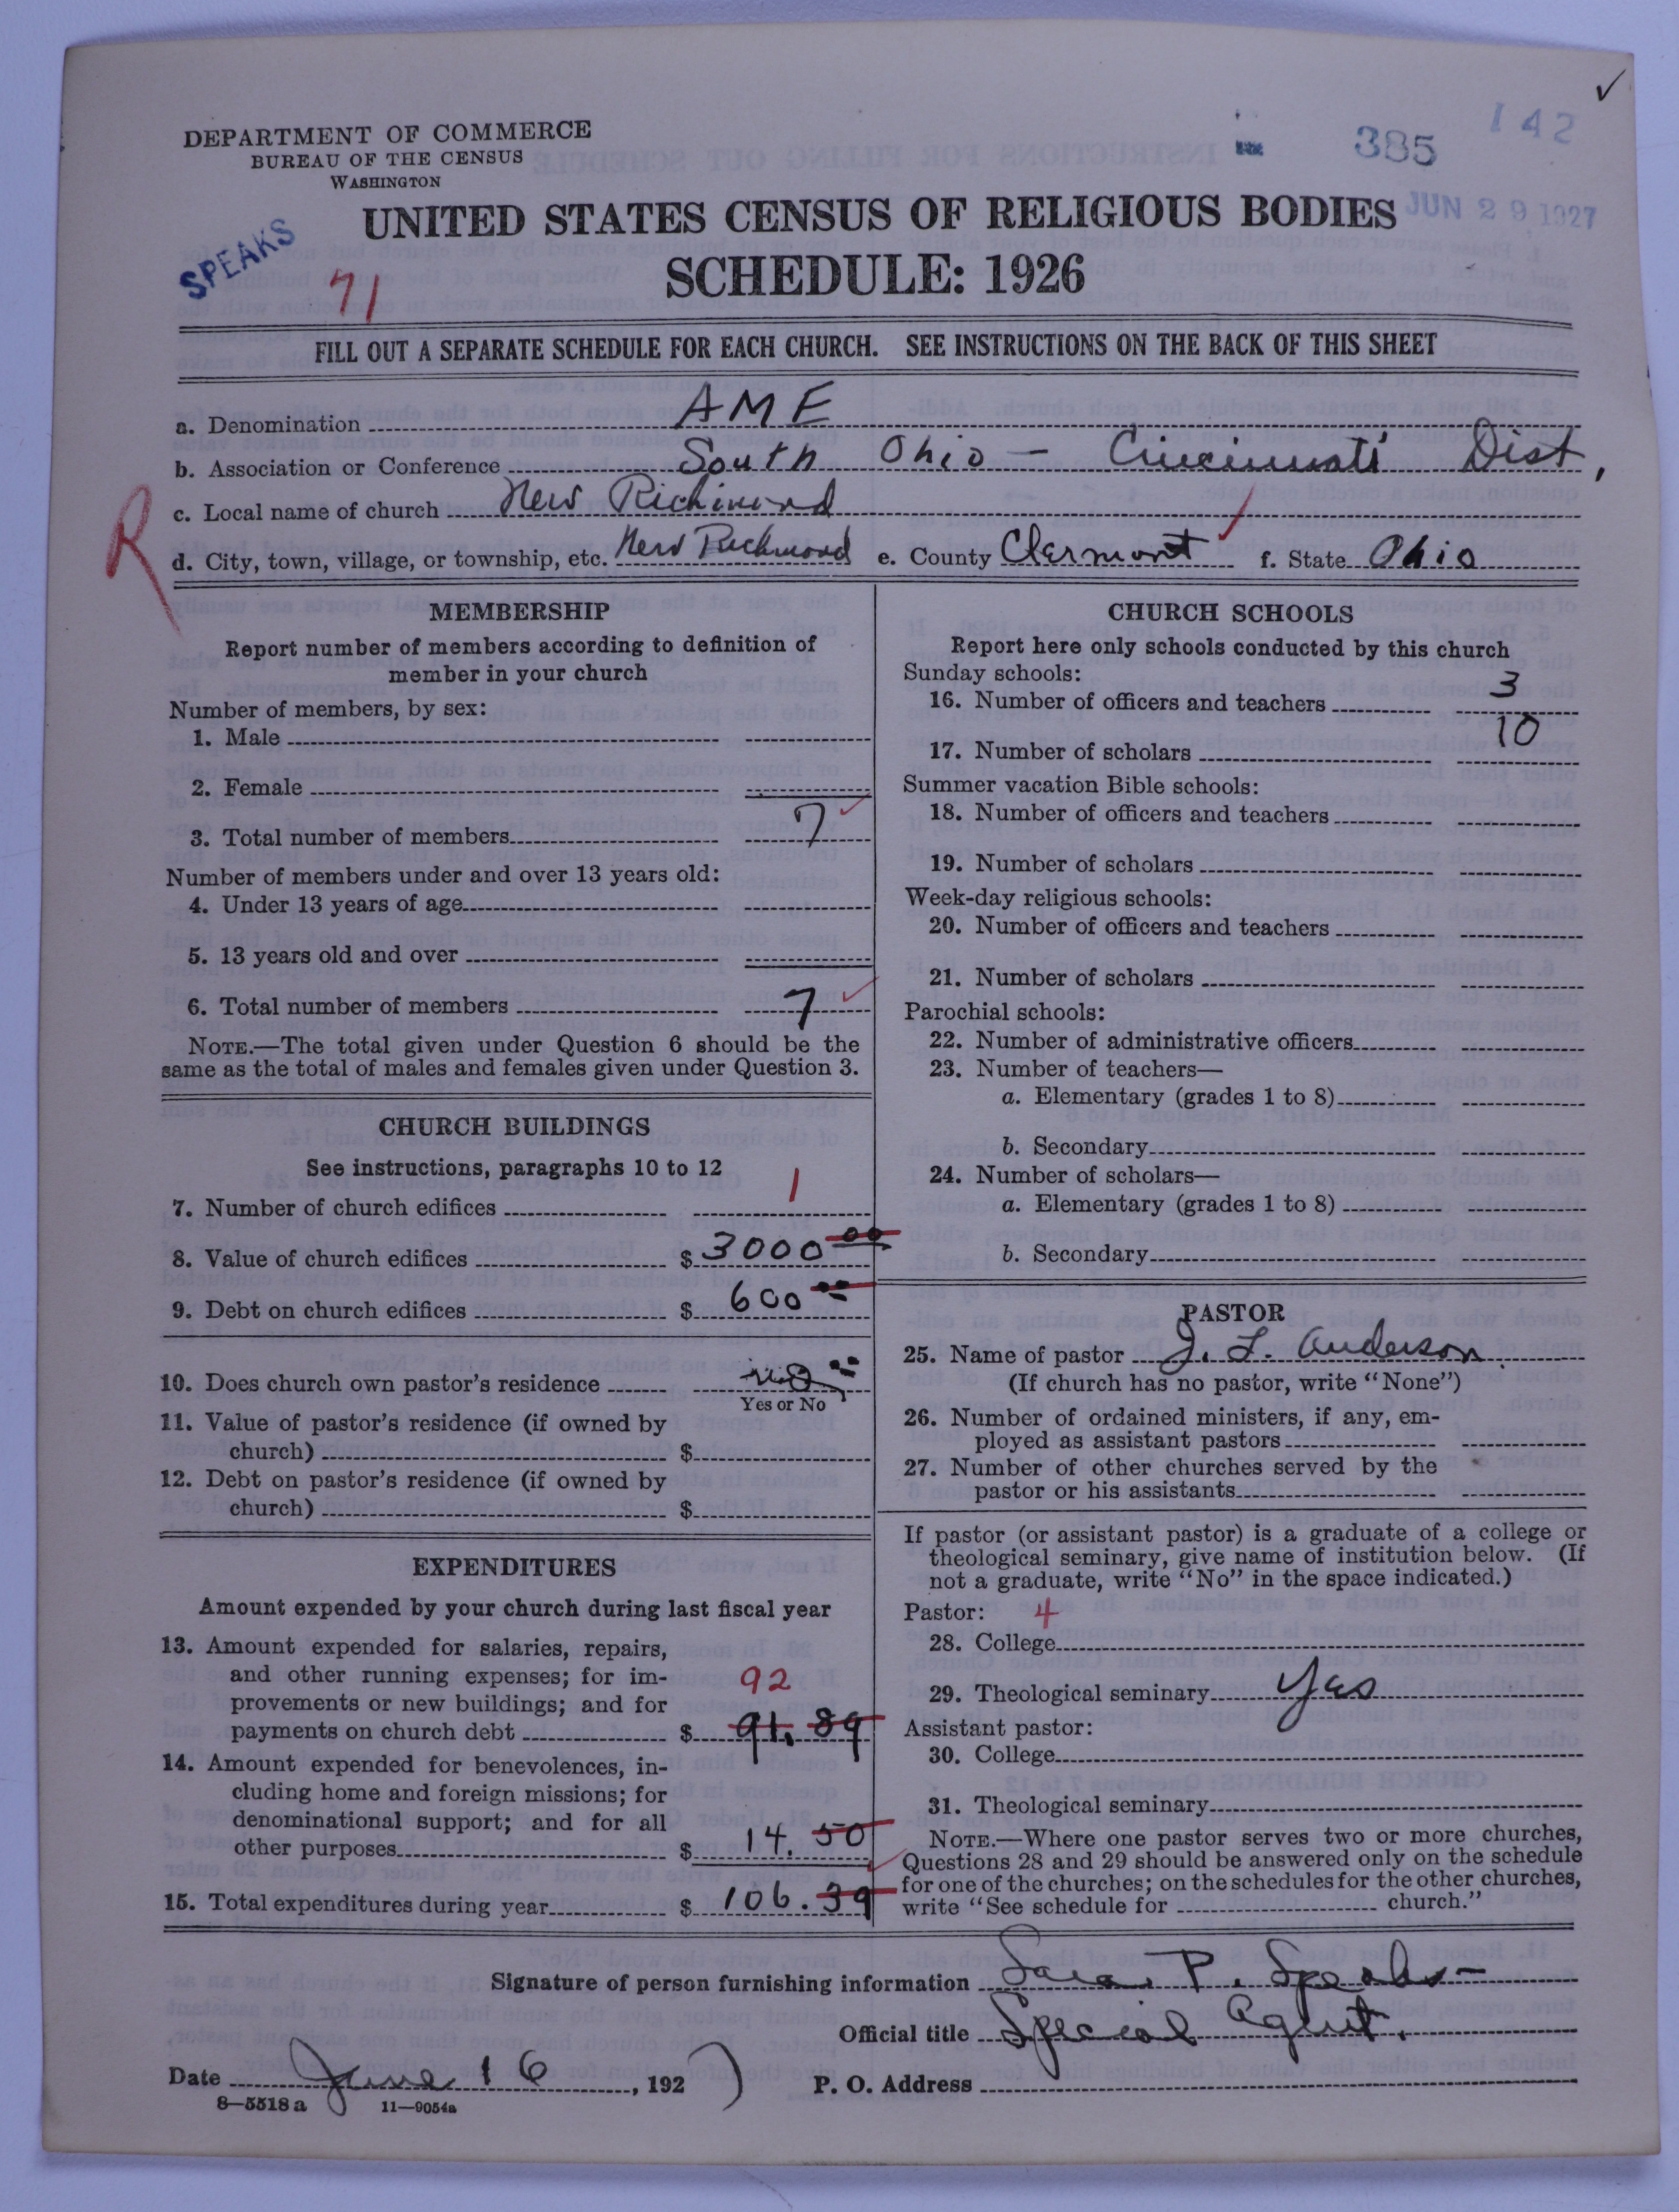 DEPARTMENT OF COMMERCE
BUREAU OF THE CENSUS
WASHINGTON
385
142
JUN 29 1927
UNITED STATES CENSUS OF RELIGIOUS BODIES
SCHEDULE: 1926
SPEAKS
71
FILL OUT A SEPARATE SCHEDULE FOR EACH CHURCH. SEE INSTRUCTIONS ON THE BACK OF THIS SHEET
a. Denomination AME
b. Association or Conference South Ohio - Cincinnati Dist.
R
c. Local name of church New Richmond
d. City, town, village, or township, etc. New Richmond e. County Clermont f. State Ohio
MEMBERSHIP
Report number of members according to definition of
member in your church
Number of members, by sex:
1. Male
2. Female
3. Total number of members 7
Number of members under and over 13 years old:
4. Under 13 years of age
5. 13 years old and over
6. Total number of members 7
NOTE.—The total given under Question 6 should be the
same as the total of males and females given under Question 3.
CHURCH BUILDINGS
See instructions, paragraphs 10 to 12
7. Number of church edifices 1
8. Value of church edifices $ 3000 00
9. Debt on church edifices $ 600 00
10. Does church own pastor's residence no
Yes or No
11. Value of pastor's residence (if owned by
church) $
12. Debt on pastor's residence (if owned by
church) $
EXPENDITURES
Amount expended by your church during last fiscal year
13. Amount expended for salaries, repairs,
and other running expenses; for im-
provements or new buildings; and for 92
payments on church debt $ 91.89
14. Amount expended for benevolences, in-
cluding home and foreign missions; for
denominational support; and for all
other purposes $ 14.50
15. Total expenditures during year $ 106.39
CHURCH SCHOOLS
Report here only schools conducted by this church
Sunday schools:
16. Number of officers and teachers 3
17. Number of scholars 10
Summer vacation Bible schools:
18. Number of officers and teachers
19. Number of scholars
Week-day religious schools:
20. Number of officers and teachers
21. Number of scholars
Parochial schools:
22. Number of administrative officers
23. Number of teachers—
a. Elementary (grades 1 to 8)
b. Secondary
24. Number of scholars—
a. Elementary (grades 1 to 8)
b. Secondary
PASTOR
25. Name of pastor J. L. Anderson
(If church has no pastor, write "None")
26. Number of ordained ministers, if any, em-
ployed as assistant pastors
27. Number of other churches served by the
pastor or his assistants
If pastor (or assistant pastor) is a graduate of a college or
theological seminary, give name of institution below. (If
not a graduate, write "No" in the space indicated.)
Pastor: 4
28. College
29. Theological seminary Yes
Assistant pastor:
30. College
31. Theological seminary
NOTE.—Where one pastor serves two or more churches,
Questions 28 and 29 should be answered only on the schedule
for one of the churches; on the schedules for the other churches,
write "See schedule for church."
Signature of person furnishing information Sara P. Speaks
Official title Special Agent.
Date June 16, 1927 P. O. Address
8—5518 a 11—9054a